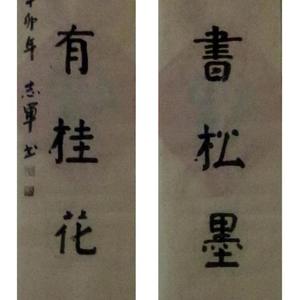 書松墨
有桂花
卯年 志軍书